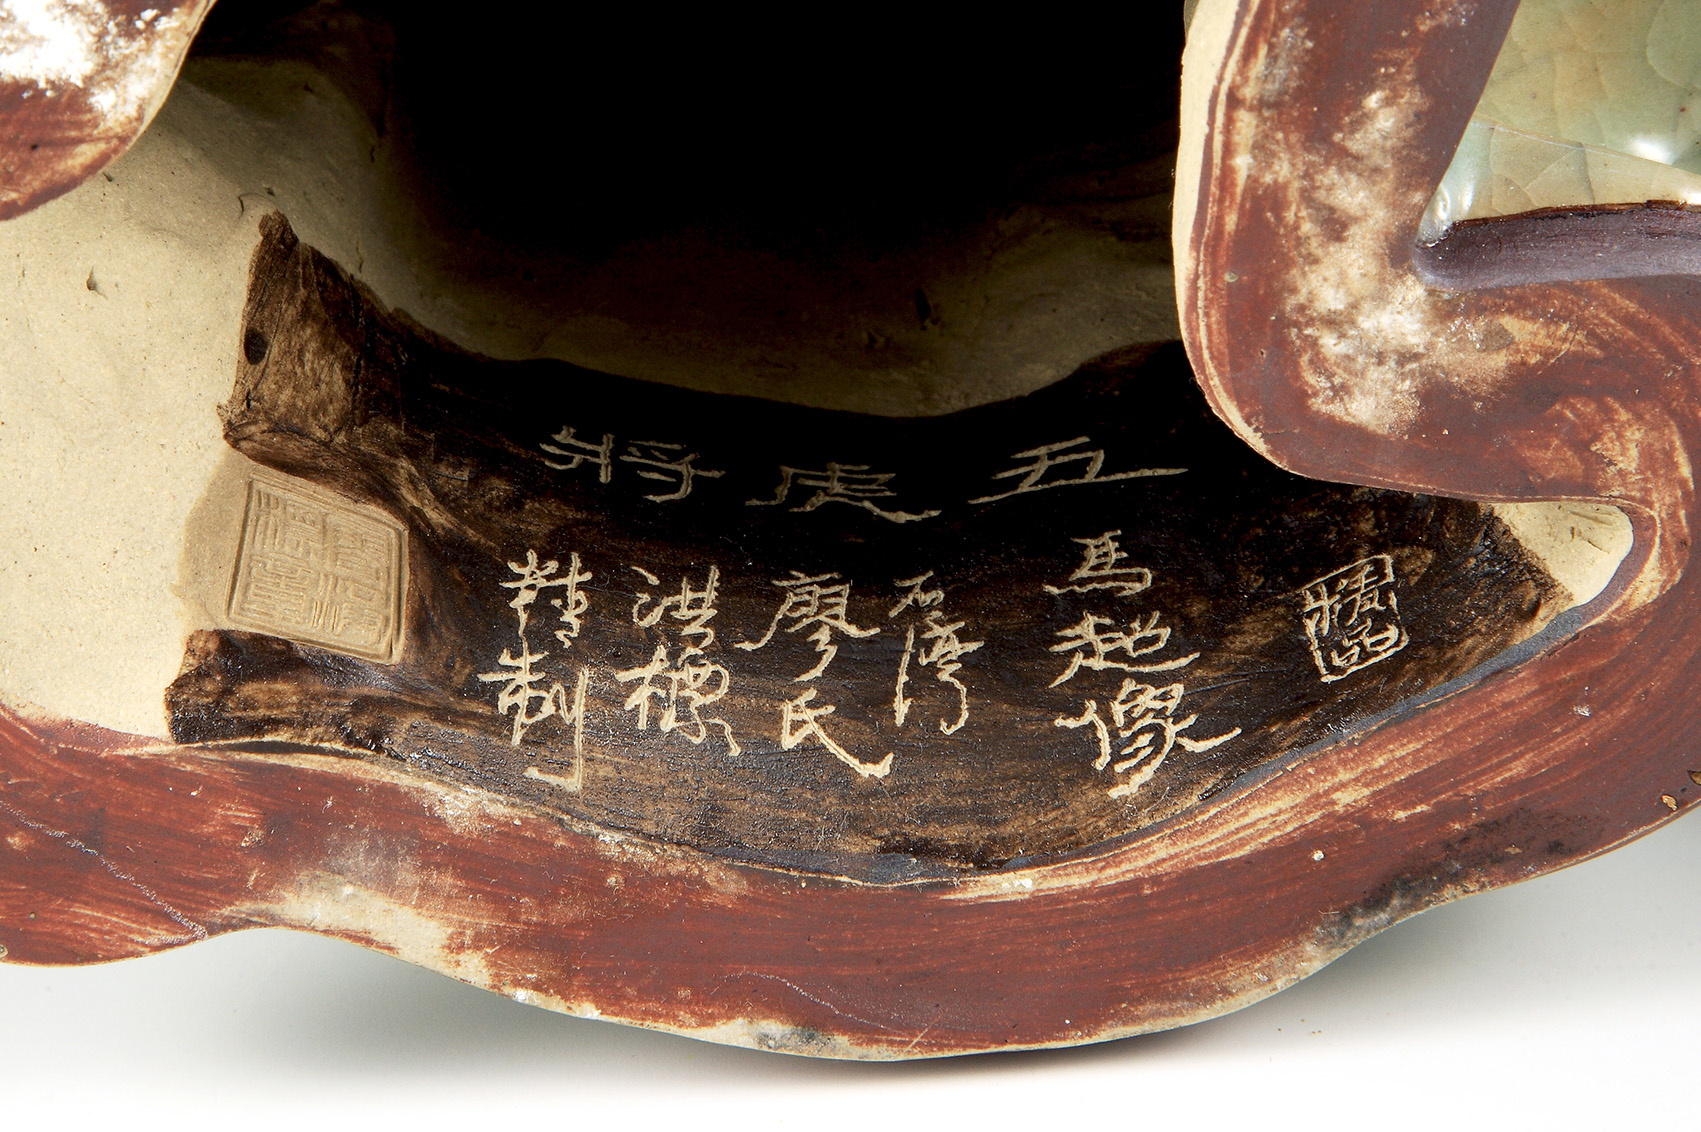 五虎将
精品
馬超像
石湾
廖氏
洪標
精制